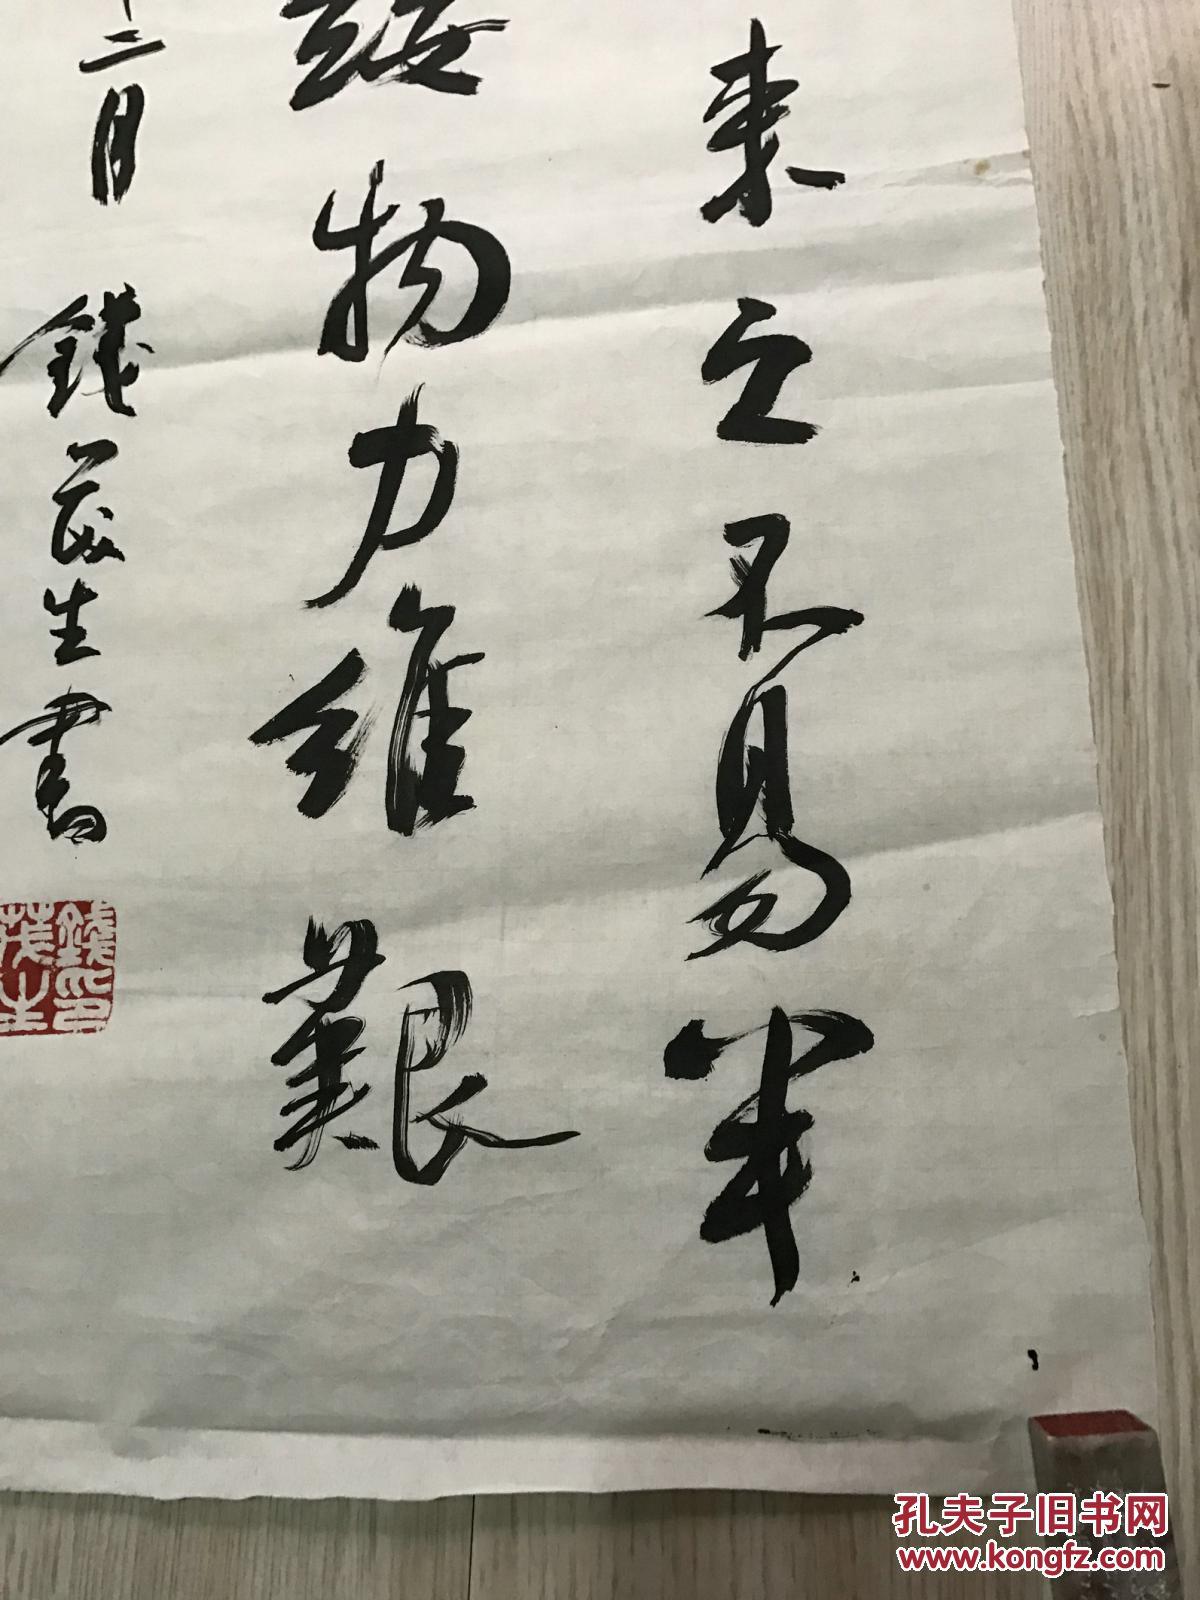 來之不易半
缕物力維艱
十二月 錢茂生書
錢茂生印
孔夫子旧书网
www.kongfz.com